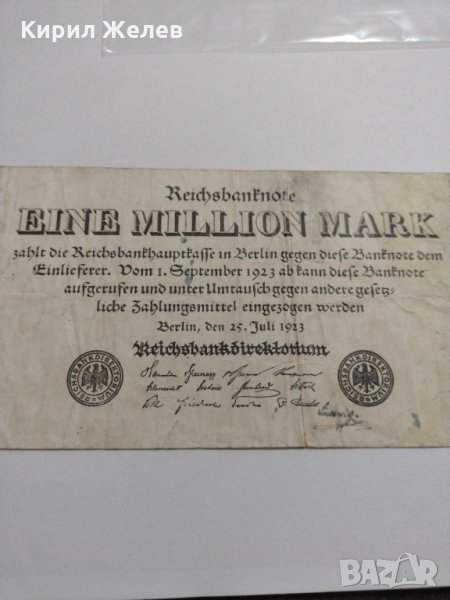 Кирил Желев
Reichsbanknote
EINE MILLION MARK
zahlt die Reichsbankhauptkasse in Berlin gegen diese Banknote dem
Einlieferer. Vom 1. September 1923 ab kann diese Banknote
aufgerufen und unter Umtausch gegen andere gesetz-
liche Zahlungsmittel eingezogen werden
Berlin, den 25. Juli 1923
Reichsbankdirektorium
REICHSBANKDIREKTORIUM
REICHSBANKDIREKTORIUM
BAZAR